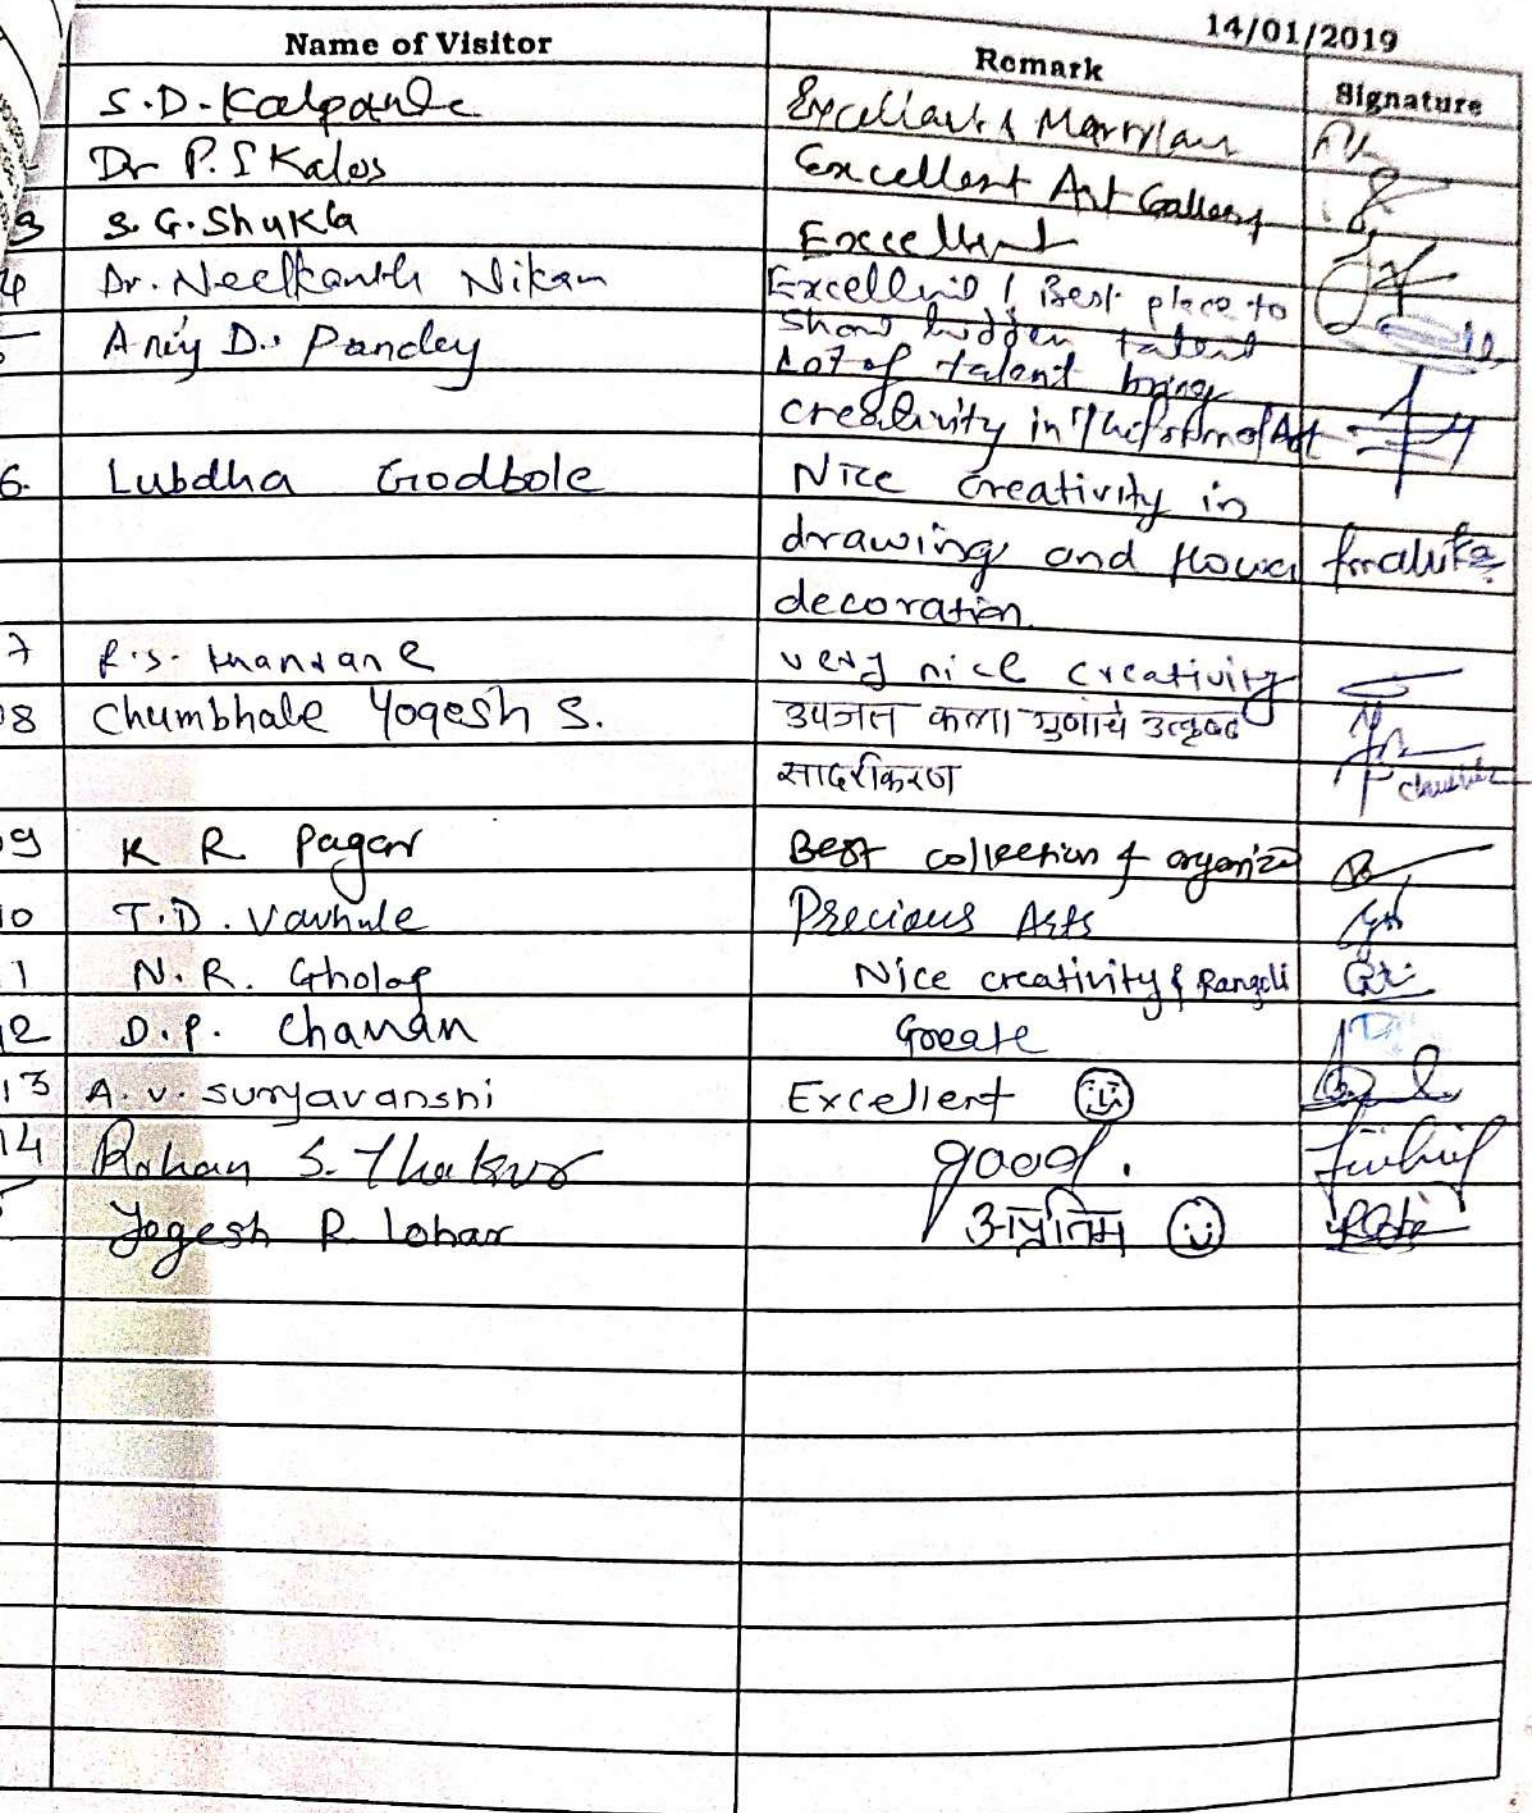 14/01/2019
Name of Visitor Remark Signature
S.D. Kalpande Excellant &
Dr P. S Kalos Excellent Art Gallery
3 S. G. Shukla Excellent
4 Dr. Neelkanth Nikam Excellent ! Best place to
show hidden talent
5 D. Pandey Lot of talent bring
creativity in the form of Art
6. Lubdha Godbole Nice creativity in
drawing and flower
decoration.
7 R.S. very nice creativity
08 Chumbhale Yogesh S. उपजत कला गुणांचे उत्कृष्ट
सादरीकरण
09 K R Pagar Best collection & organize
10 T.D. Vavhule Precious Arts
1 N. R. Gholap Nice creativity & Rangoli
12 D.P. Chavan Greate
13 A. V. Suryavanshi Excellent
14 Rohan S. Thakur good.
Yogesh R. Lohar अप्रतिम